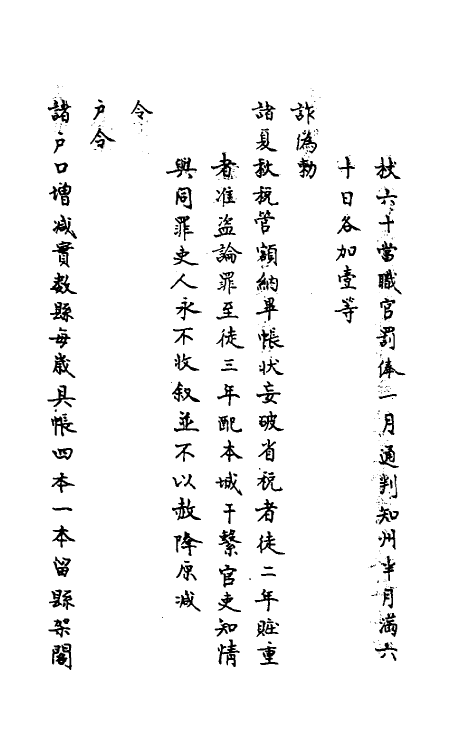 杖六十當職官罰俸一月通判知州半月滿六
十日各加壹等
詐偽勅
諸夏秋稅管額納畢帳狀妄破省稅者徒二年贓重
者准盜論罪至徒三年配本城干繫官吏知情
與同罪吏人永不收叙並不以赦降原減
令
户令
諸户口增减實數縣每歲具帳四本一本留縣架閣